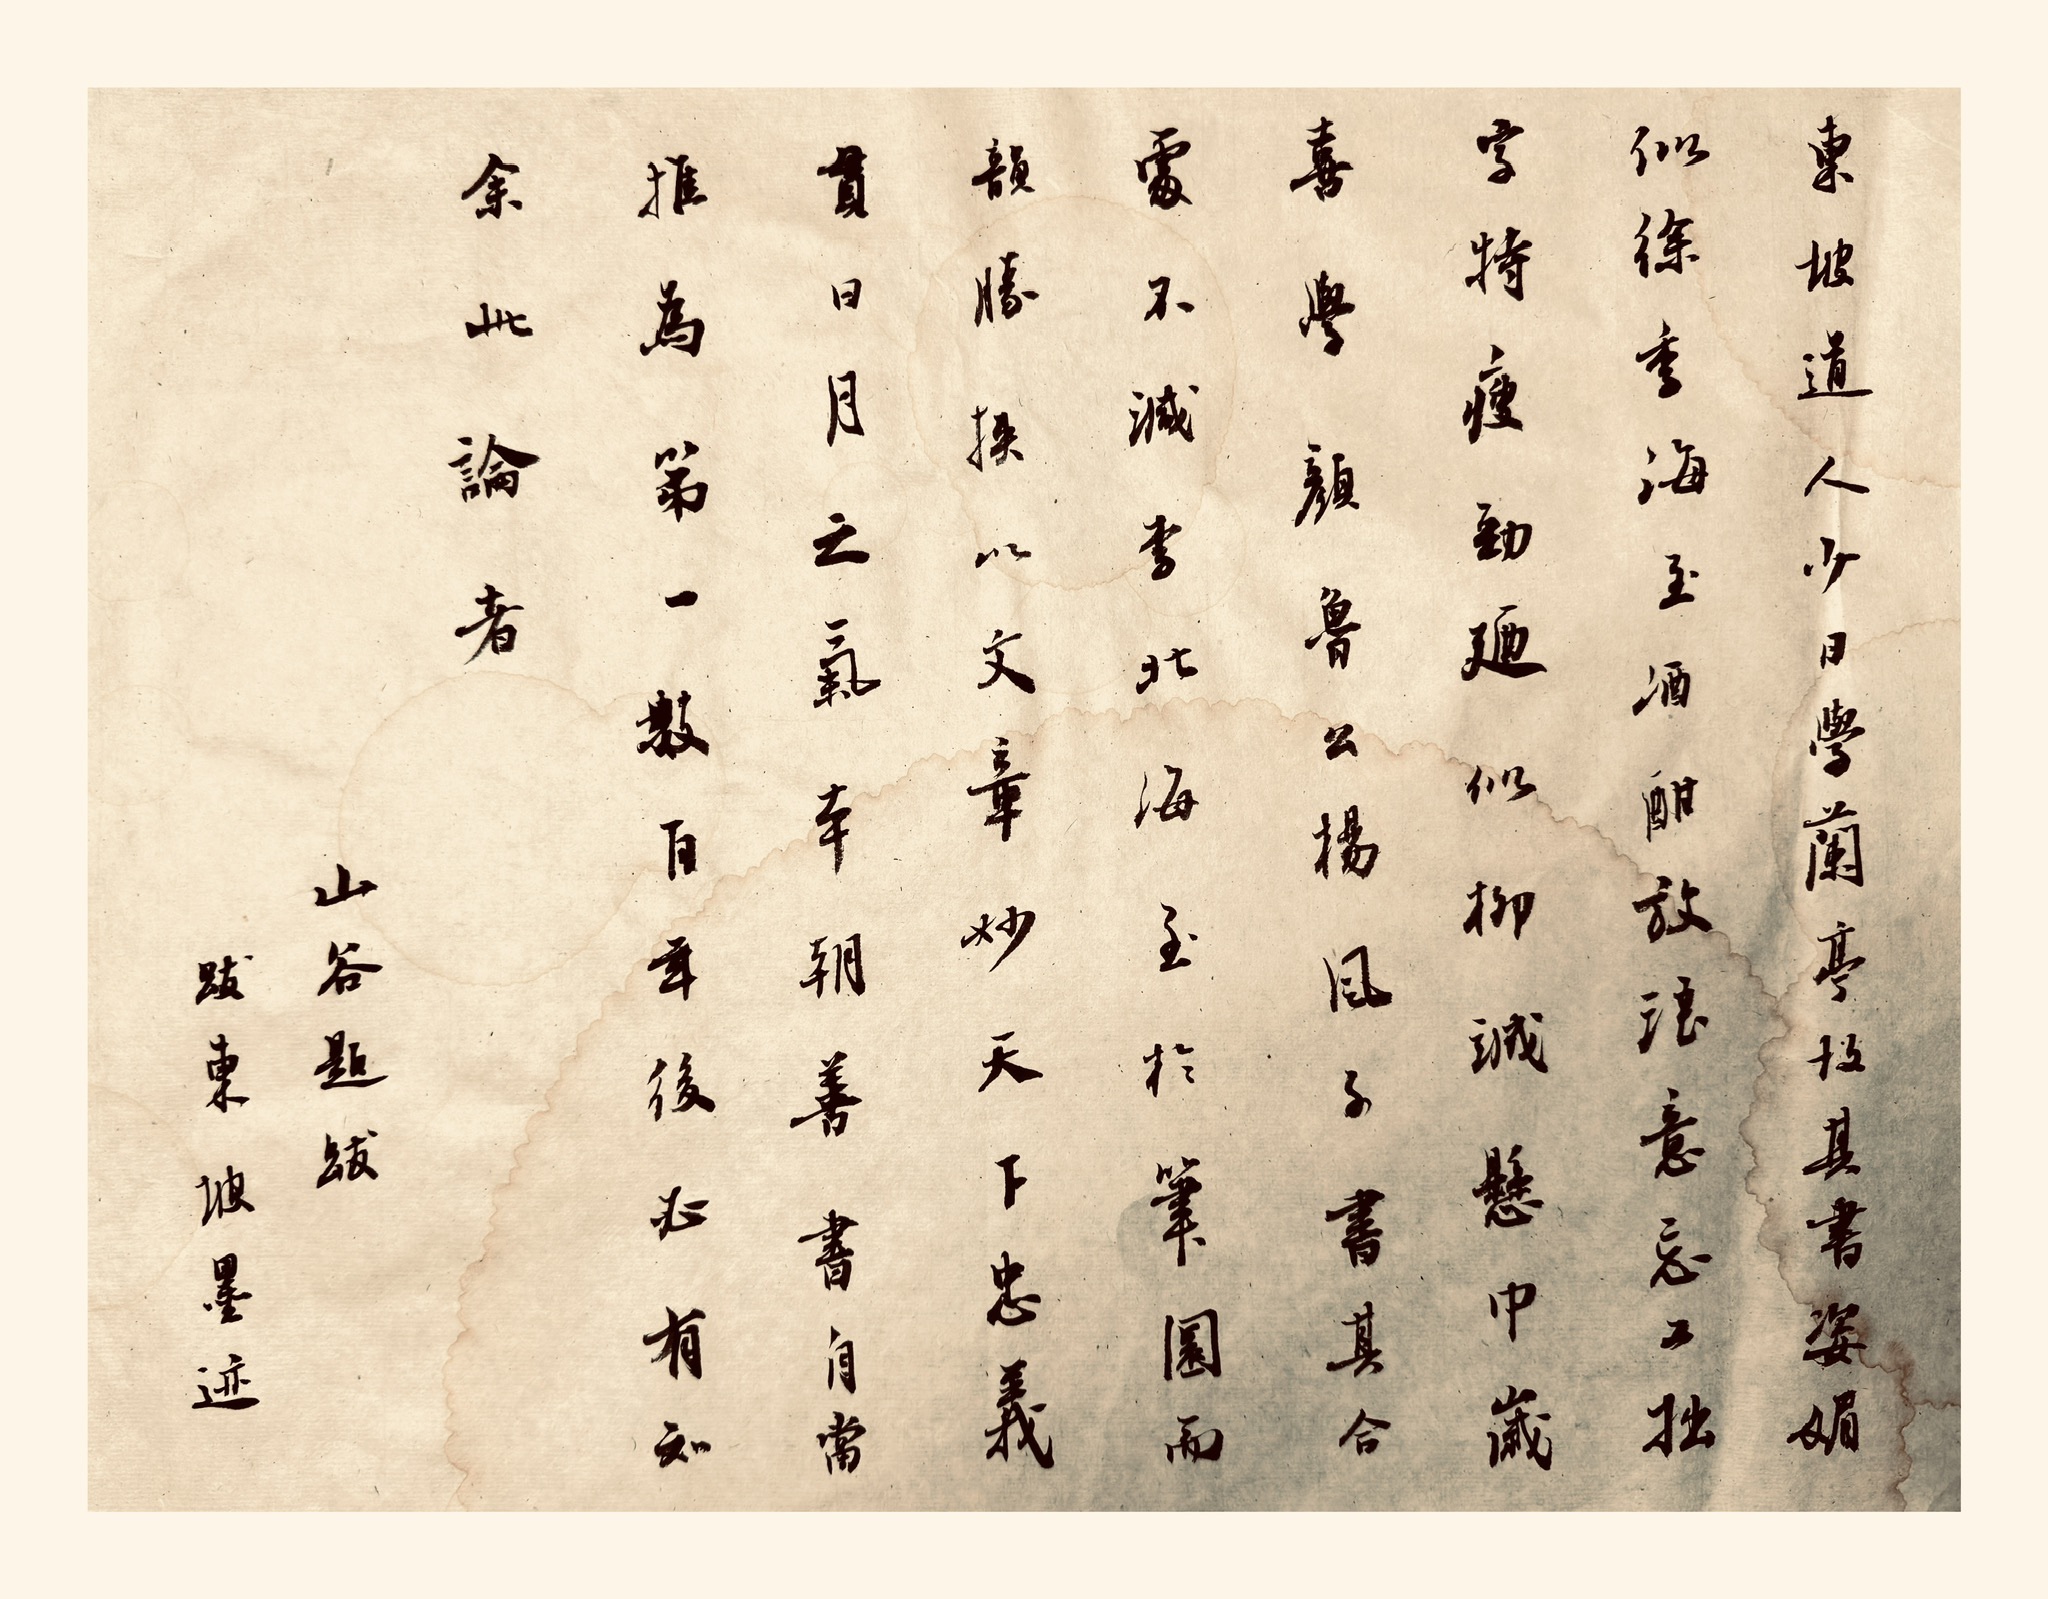 東坡道人少日學蘭亭故其書姿媚
似徐季海至酒酣放浪意忘工拙
字特瘦勁廼似柳誠懸中歲
喜學顏魯公楊風子書其合
處不減李北海至於筆圓而
韻勝挾以文章妙天下忠義
貫日月之氣本朝善書自當
推為第一數百年後必有知
余此論者
山谷題跋
跋東坡墨迹